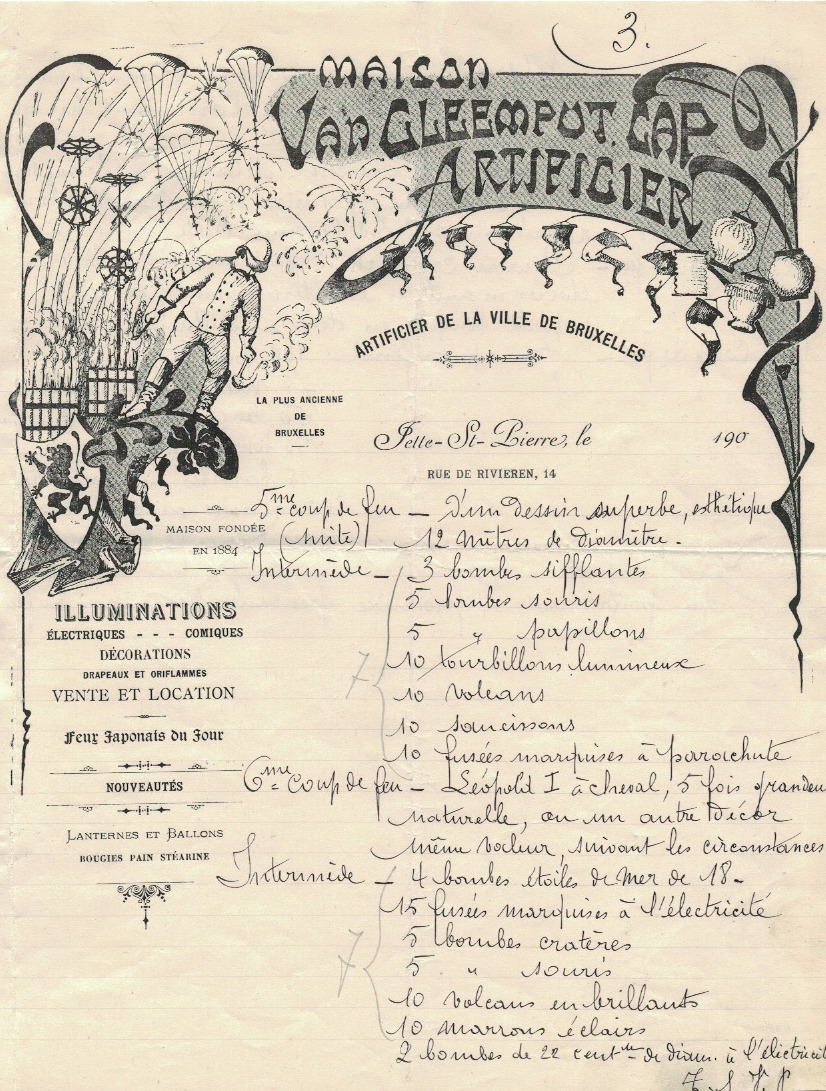 3.
MAISON
VAN CLEEMPUT. CAP
ARTIFICIER
ARTIFICIER DE LA VILLE DE BRUXELLES
LA PLUS ANCIENNE
DE
BRUXELLES
Jette-St-Pierre, le 190
RUE DE RIVIEREN, 14
MAISON FONDÉE
EN 1884
ILLUMINATIONS
ÉLECTRIQUES - - - COMIQUES
DÉCORATIONS
DRAPEAUX ET ORIFLAMMES
VENTE ET LOCATION
Feux Japonais du Jour
NOUVEAUTÉS
LANTERNES ET BALLONS
BOUGIES PAIN STÉARINE
5me coup de feu — D'un dessin superbe, esthétique
(suite) 12 mètres de diamètre.
Intermède — 3 bombes sifflantes
5 bombes souris
5 " papillons
10 tourbillons lumineux
7
10 volcans
10 saucissons
10 fusées marquises à parachute
6me coup de feu — Léopold I à cheval, 5 fois grandeur
naturelle, ou un autre décor
même valeur, suivant les circonstances
Intermède — 4 bombes étoiles de mer de 18-
15 fusées marquises à l'électricité
5 bombes cratères
7
5 " souris
10 volcans en brillants
10 marrons éclairs
2 bombes de 22 centm de diam. à l'électricité